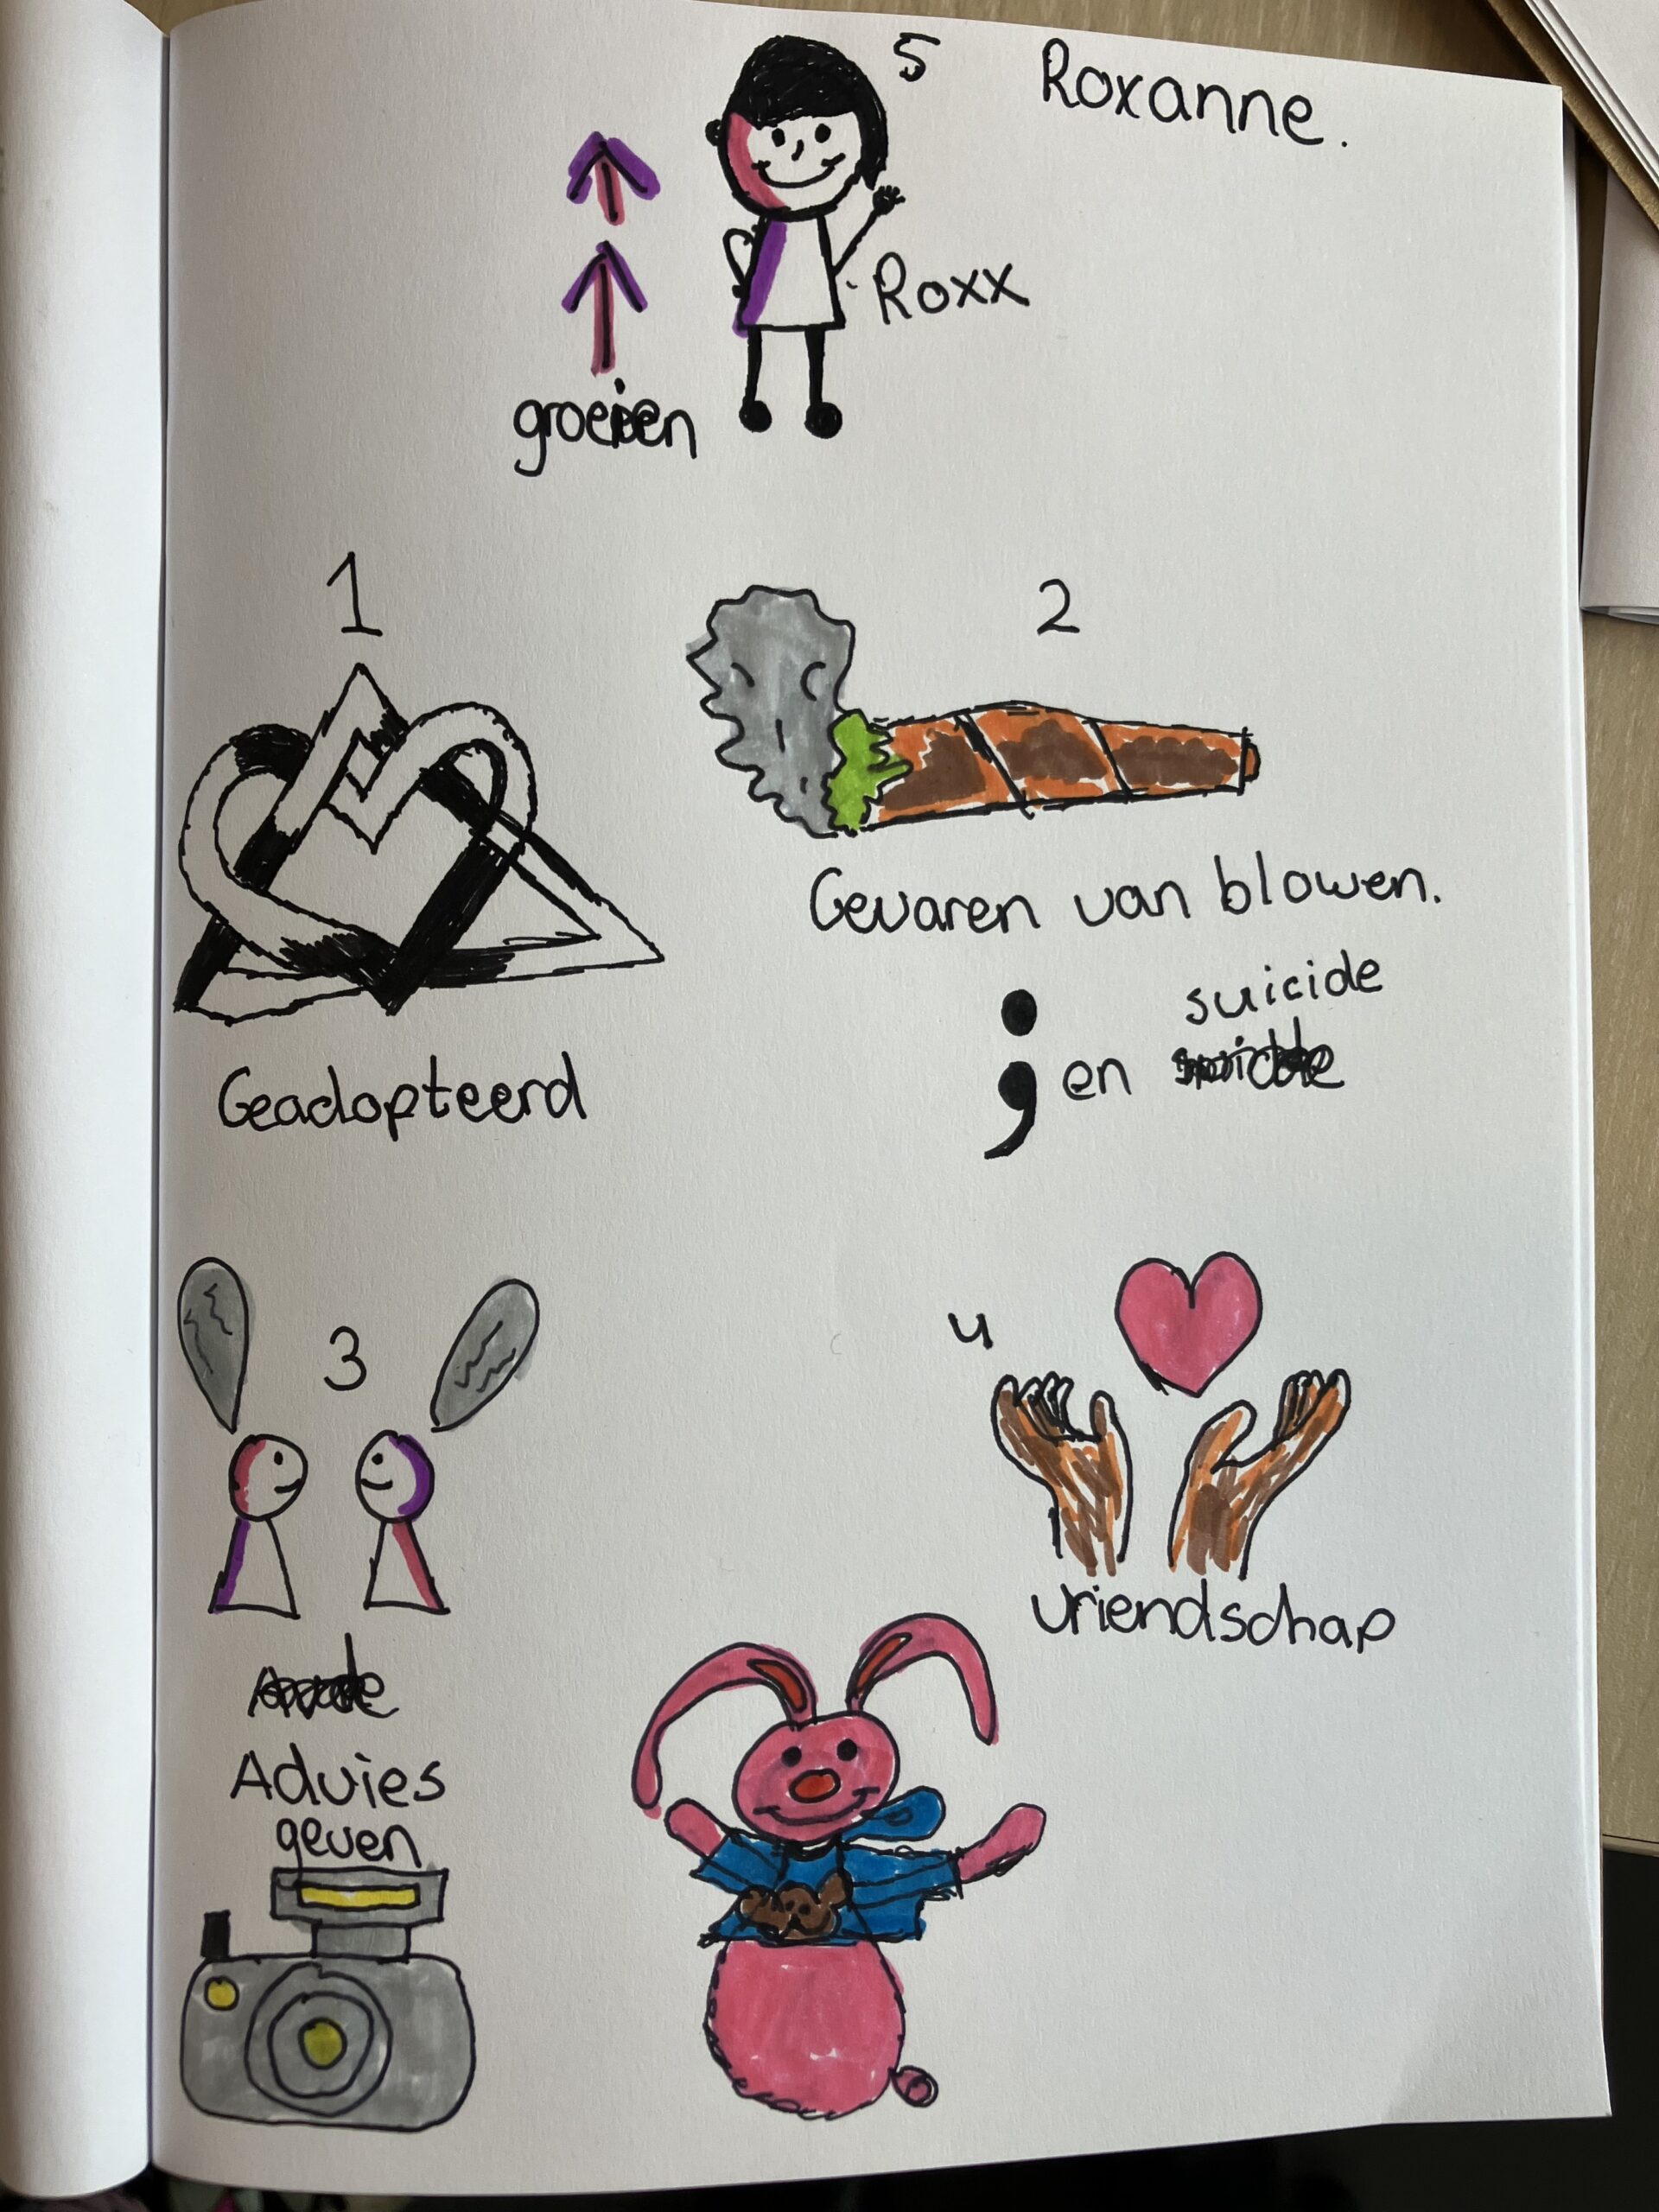 5 Roxanne.
Roxx
groeien
1
2
Geadopteerd
Gevaren van blowen.
; en suicide
3
4
Advies
geven
vriendschap